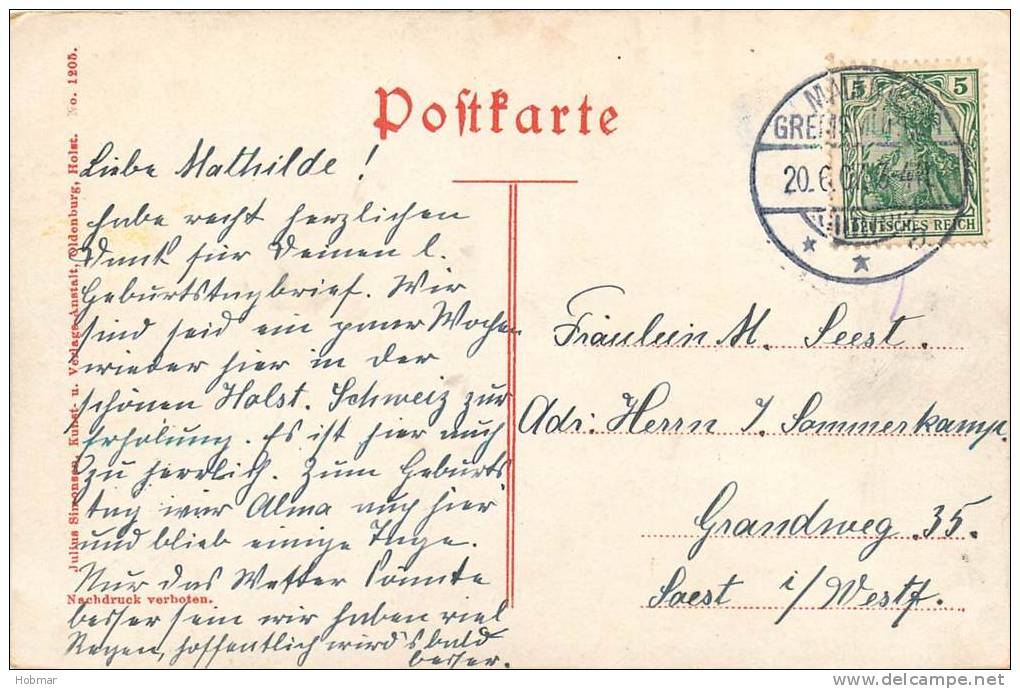 Postkarte
Liebe Mathilde!
habe recht herzlichen
Dank für Deinen l.
Geburtstagbrief. Wir
sind seid ein paar Wochen
wieder hier in der
schönen Holst. Schweiz zur
Erholung. Es ist hier auch
zu herrlich. Zum Geburts
tag war Alma auch hier
und blieb einige Tage.
Nur das Wetter könnte
besser sein wir haben viel
Regen, hoffentlich wird's bald
besser.
Fräulein M. Seest.
Adr: Herrn J. Sommerkamp.
Grandweg 35.
Soest i/Westf.
5 5
DEUTSCHES REICH
20.6.07
Julius Simonsen, Kunst- u. Verlags-Anstalt, Oldenburg, Holst. No. 1205.
Nachdruck verboten.
Hobmar
delcampe.net